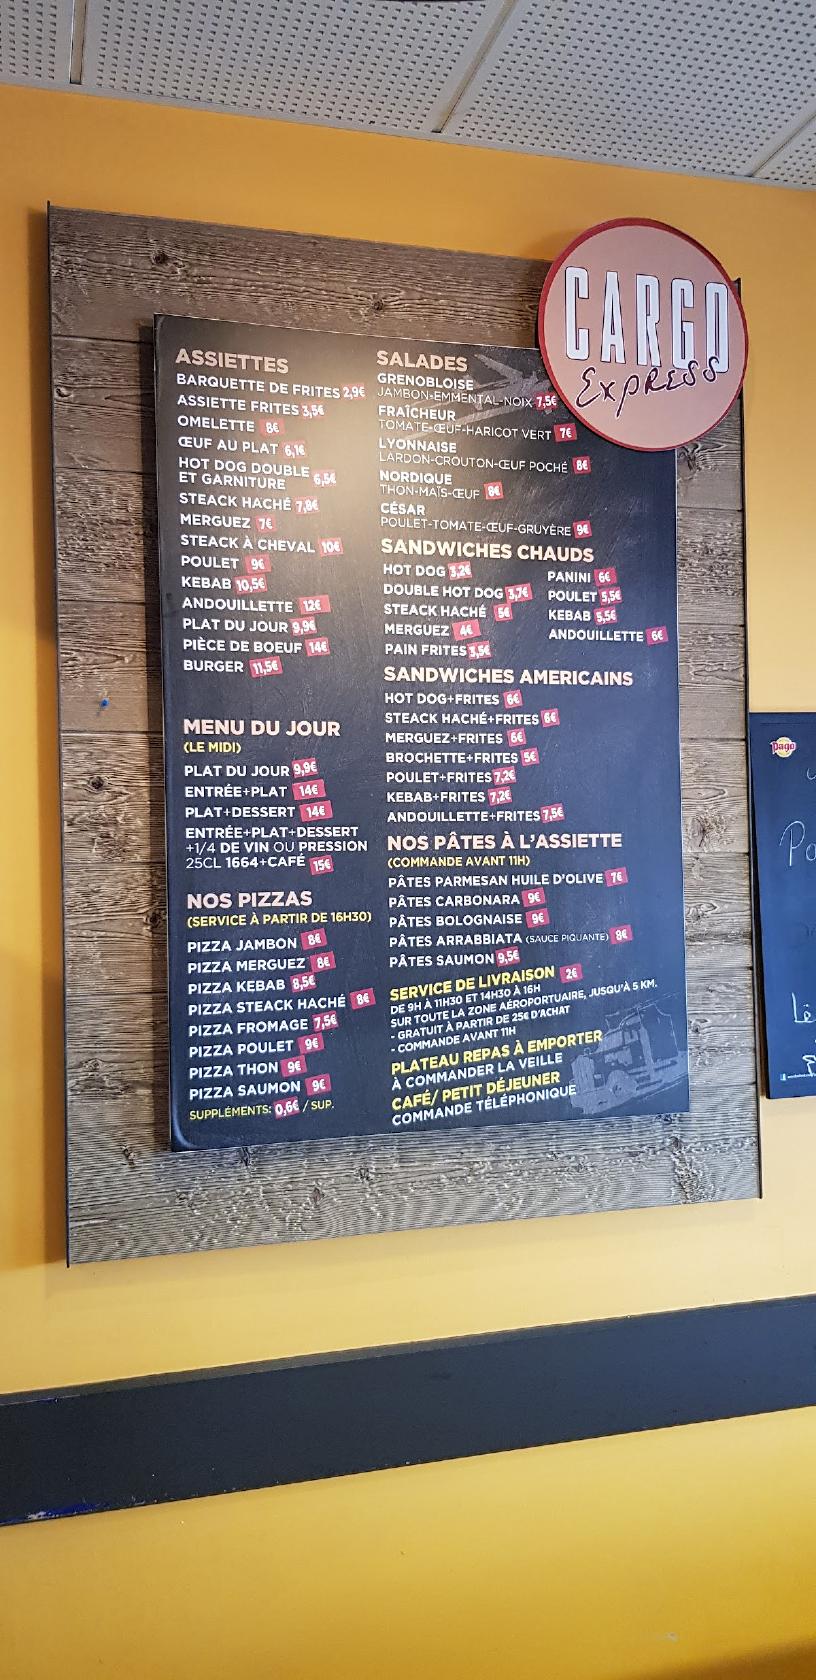 CARGO
Express
ASSIETTES
BARQUETTE DE FRITES 2,9€
ASSIETTE FRITES 3,5€
OMELETTE 8€
ŒUF AU PLAT 6,1€
HOT DOG DOUBLE
ET GARNITURE 6,5€
STEACK HACHÉ 7,8€
MERGUEZ 7€
STEACK À CHEVAL 10€
POULET 9€
KEBAB 10,5€
ANDOUILLETTE 12€
PLAT DU JOUR 9,9€
PIÈCE DE BOEUF 14€
BURGER 11,5€
MENU DU JOUR
(LE MIDI)
PLAT DU JOUR 9,9€
ENTRÉE+PLAT 14€
PLAT+DESSERT 14€
ENTRÉE+PLAT+DESSERT
+1/4 DE VIN OU PRESSION
25CL 1664+CAFÉ 15€
NOS PIZZAS
(SERVICE À PARTIR DE 16H30)
PIZZA JAMBON 8€
PIZZA MERGUEZ 8€
PIZZA KEBAB 8,5€
PIZZA STEACK HACHÉ 8€
PIZZA FROMAGE 7,5€
PIZZA POULET 9€
PIZZA THON 9€
PIZZA SAUMON 9€
SUPPLÉMENTS: 0,6€ / SUP.
SALADES
GRENOBLOISE
JAMBON-EMMENTAL-NOIX 7,5€
FRAÎCHEUR
TOMATE-ŒUF-HARICOT VERT 7€
LYONNAISE
LARDON-CROUTON-ŒUF POCHÉ 8€
NORDIQUE
THON-MAÏS-ŒUF 8€
CÉSAR
POULET-TOMATE-ŒUF-GRUYÈRE 9€
SANDWICHES CHAUDS
HOT DOG 3,2€
DOUBLE HOT DOG 3,7€
STEACK HACHÉ 5€
MERGUEZ 4€
PAIN FRITES 3,5€
PANINI 6€
POULET 5,5€
KEBAB 5,5€
ANDOUILLETTE 6€
SANDWICHES AMERICAINS
HOT DOG+FRITES 6€
STEACK HACHÉ+FRITES 6€
MERGUEZ+FRITES 6€
BROCHETTE+FRITES 5€
POULET+FRITES 7,2€
KEBAB+FRITES 7,2€
ANDOUILLETTE+FRITES 7,5€
NOS PÂTES À L'ASSIETTE
(COMMANDE AVANT 11H)
PÂTES PARMESAN HUILE D'OLIVE 7€
PÂTES CARBONARA 9€
PÂTES BOLOGNAISE 9€
PÂTES ARRABBIATA (SAUCE PIQUANTE) 8€
PÂTES SAUMON 9,5€
SERVICE DE LIVRAISON 2€
DE 9H À 11H30 ET 14H30 À 16H
SUR TOUTE LA ZONE AÉROPORTUAIRE, JUSQU'À 5 KM.
- GRATUIT À PARTIR DE 25€ D'ACHAT
- COMMANDE AVANT 11H
PLATEAU REPAS À EMPORTER
À COMMANDER LA VEILLE
CAFÉ/ PETIT DÉJEUNER
COMMANDE TÉLÉPHONIQUE
Pago